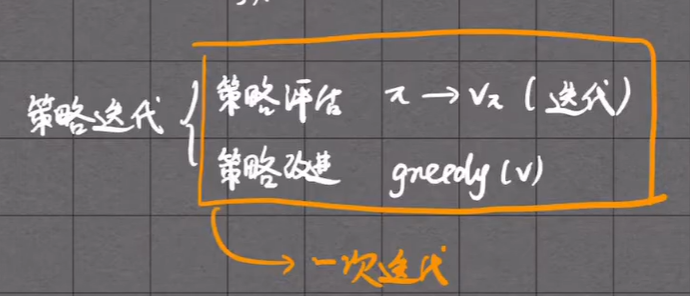 策略迭代
策略评估 π → Vπ (迭代)
策略改进 greedy (v)
→ 一次迭代